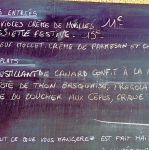 ENTRÉES
CRÈME DE MORILLES 11€
ASSIETTE FESTIVE 15€
OEUF MOLLET, CRÈME DE PARMESAN ET
PLATS
CROUSTILLANT DE CANARD CONFIT À LA
DE THON BASQUAISE,
DU BOUCHER AUX CÈPES, CRIQUE
TOUT CE QUE VOUS MANGEREZ EST FAIT MAI